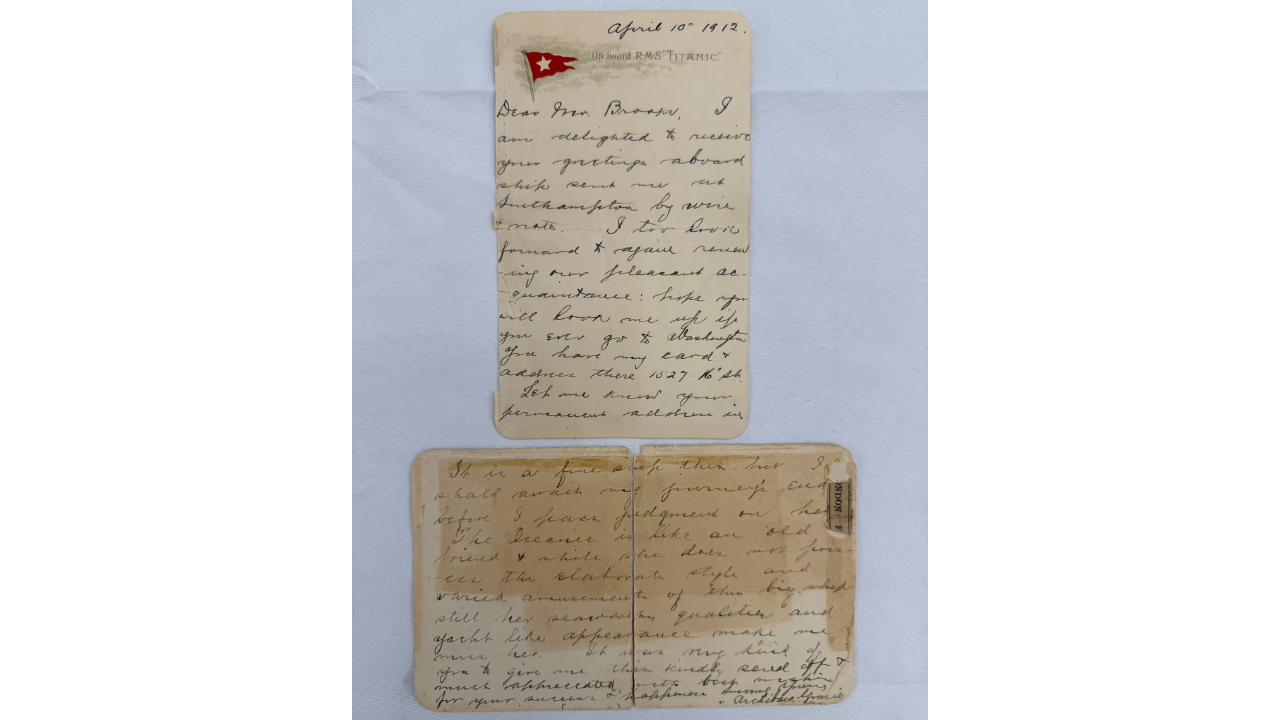 April 10" 1912.
On board R.M.S "TITANIC."
Dear Mr. Brooks, I
am delighted to receive
your greetings aboard
ship sent me at
Southampton by wire
& note. I too look
forward to again renew
-ing our pleasant ac-
-quaintance: hope you
will look me up if
you ever go to Washington
You have my card &
address there 1527 16" St.
Let me know your
permanent address in
It is a fine ship this but I
shall await my journey's end
before I pass judgment on her
The Oceanic is like an old
friend & while she does not poss-
-ess the elaborate style and
varied amusements of this big ship
still her seaworthy qualities and
yacht like appearance make me
miss her. It was very kind of
you to give me this kindly send off &
much appreciated, with best wishes
for your success & happiness
Archibald Gracie
NDON: W